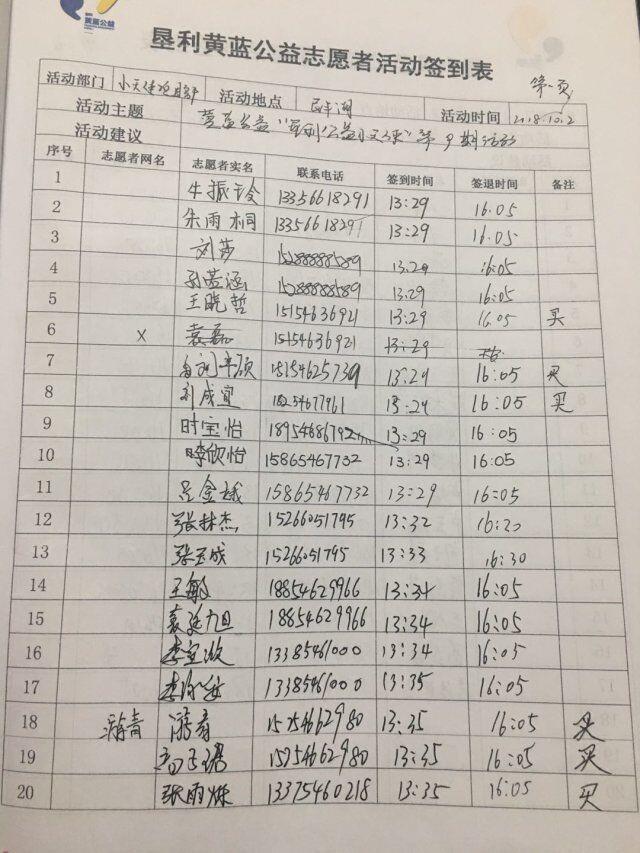 黄蓝公益
垦利黄蓝公益志愿者活动签到表
第一页
活动部门 小天使项目部 活动地点 民丰湖 活动时间 2018.10.2
活动主题 黄蓝公益"垦利公益小天使"第9期活动
活动建议
序号 志愿者网名 志愿者实名 联系电话 签到时间 签退时间 备注
1 牛振玲 13356618291 13:29 16:05
2 朱雨桐 13356618291 13:29 16:05
3 刘莎 15288888589 13:29 16:05
4 15288888589 13:29 16:05
5 王晓哲 15154636921 13:29 16:05 买
6 X 袁磊 15154636921 13:29
7 15154625739 13:29 16:05 买
8 刘成宜 15254677961 13:29 16:05 买
9 时宝怡 18954686792 13:29 16:05
10 欣怡 15865467732 13:29 16:05
11 吕金城 15865467732 13:29 16:05
12 张林杰 15266051795 13:32 16:30
13 张玉成 15266051795 13:33 16:30
14 王敏 18854629966 13:34 16:05
15 袁延九旦 18854629966 13:34 16:05
16 李宜 13385461000 13:34 16:05
17 李 13385461000 13:35 16:05
18 15254662980 13:35 16:05 买
19 15254662980 13:35 16:05 买
20 张雨烁 13375460218 13:35 16:05 买